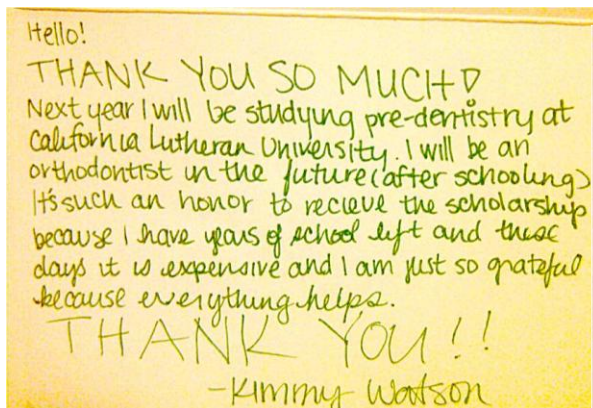 Hello!
THANK YOU SO MUCH♡
Next year I will be studying pre-dentistry at
California Lutheran University. I will be an
orthodontist in the future (after schooling)
It's such an honor to recieve the scholarship
because I have years of school left and these
days it is expensive and I am just so grateful
because everything helps.
THANK YOU!!
-Kimmy Watson